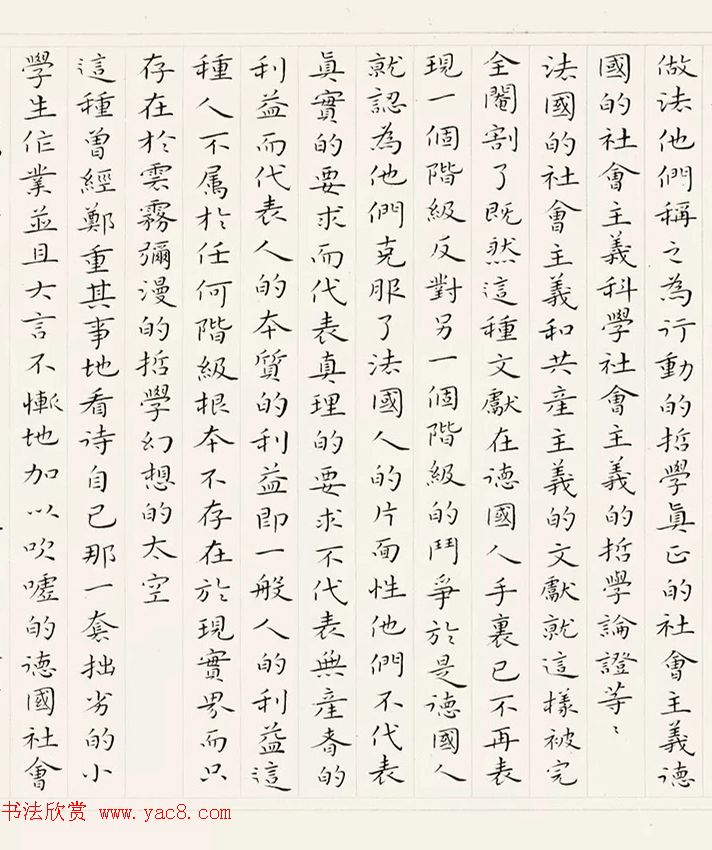 做法他們稱之為行動的哲學真正的社會主義德
國的社會主義科學社會主義的哲學論證等〻
法國的社會主義和共產主義的文獻就這樣被完
全閹割了既然這種文獻在德國人手裏已不再表
現一個階級反對另一個階級的鬥爭於是德國人
就認為他們克服了法國人的片面性他們不代表
真實的要求而代表真理的要求不代表無產者的
利益而代表人的本質的利益即一般人的利益這
種人不属於任何階級根本不存在於現實界而只
存在於雲霧彌漫的哲學幻想的太空
這種曾經鄭重其事地看待自己那一套拙劣的小
學生作業並且大言不慚地加以吹噓的德國社會
书法欣赏 www.yac8.com